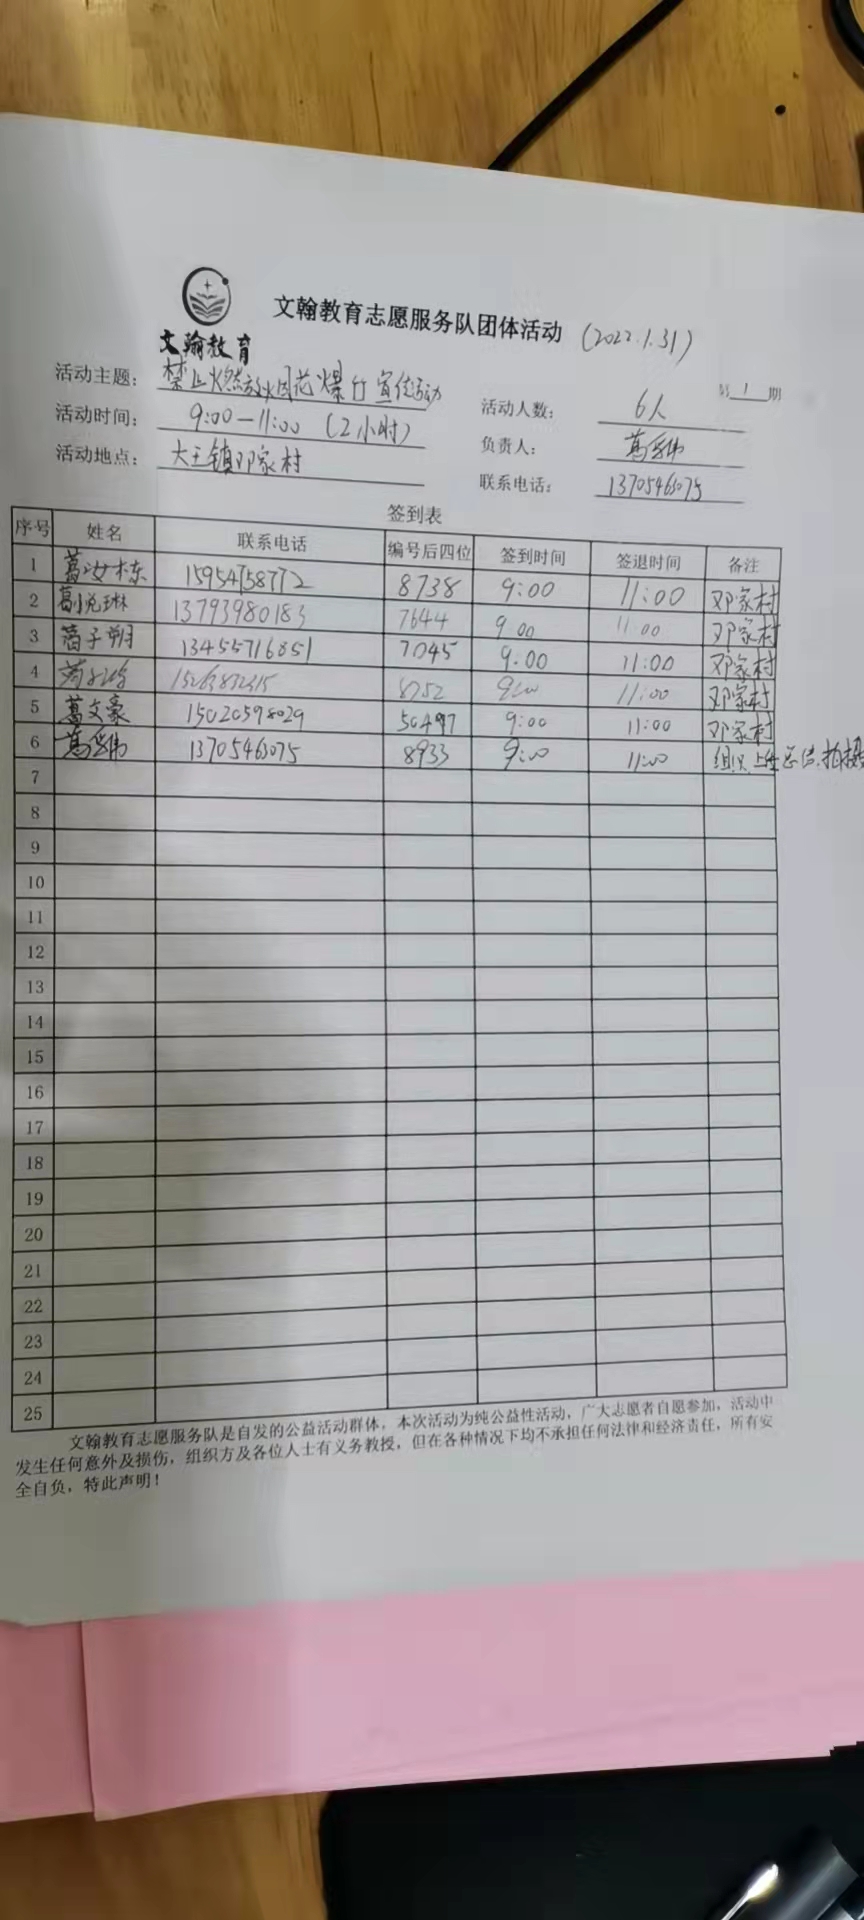 文翰教育志愿服务队团体活动 (2022.1.31)
文翰教育
第 1 期
活动主题: 禁止燃放烟花爆竹宣传活动
活动人数: 6人
活动时间: 9:00—11:00 (2小时)
负责人: 葛
活动地点: 大王镇邓家村
联系电话: 13705463075
签到表
序号 姓名 联系电话 编号后四位 签到时间 签退时间 备注
1 葛汝栋 15954758772 8738 9:00 11:00 邓家村
2 13793980183 7644 9:00 11:00 邓家村
3 葛子朔 13455716851 7045 9:00 11:00 邓家村
4 9:00 11:00 邓家村
5 葛文豪 15020598029 50497 9:00 11:00 邓家村
6 葛 13705463075 8933 9:00 11:00 组织
7
8
9
10
11
12
13
14
15
16
17
18
19
20
21
22
23
24
25
文翰教育志愿服务队是自发的公益活动群体，本次活动为纯公益性活动，广大志愿者自愿参加，活动中
发生任何意外及损伤，组织方及各位人士有义务教授，但在各种情况下均不承担任何法律和经济责任，所有安
全自负，特此声明！